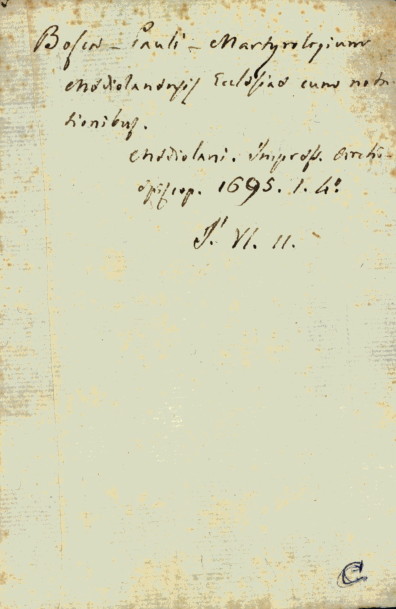 Bosca - Pauli - Martyrologium
Mediolanensis Ecclesiae cum nota-
tionibus.
Mediolani. Impress. Archi-
episcop. 1695. 1. 4°.
VI. 11.
C